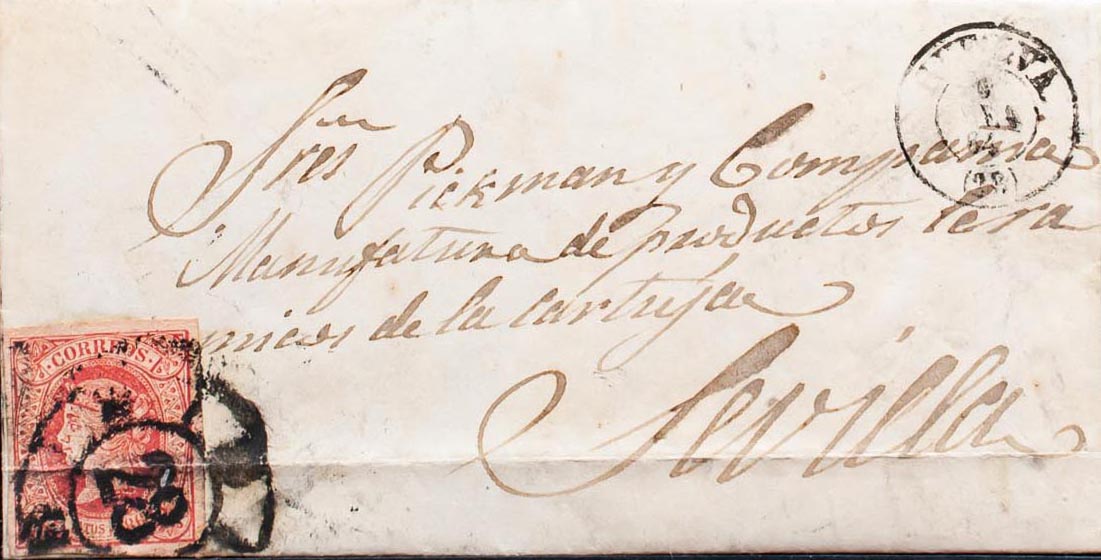 Sres Pickman y Compañia
Manufatura de productos Cera
micos de la Cartuja
Sevilla
CORREOS
78
(28)